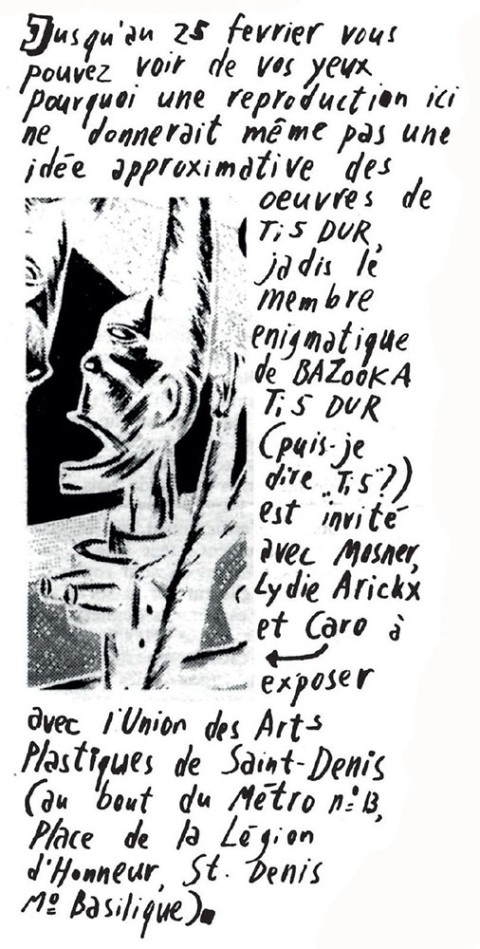 Jusqu'au 25 fevrier vous
pouvez voir de vos yeux
pourquoi une reproduction ici
ne donnerait même pas une
idée approximative des
oeuvres de
Ti5 DUR,
jadis le
membre
enigmatique
de BAZooKA
Ti5 DUR
(puis-je
dire „Ti5"?)
est invité
avec Mosner,
Lydie Arickx
et Caro à
exposer
avec l'Union des Arts
Plastiques de Saint-Denis
(au bout du Métro n° 13,
Place de la Légion
d'Honneur, St. Denis
M° Basilique).